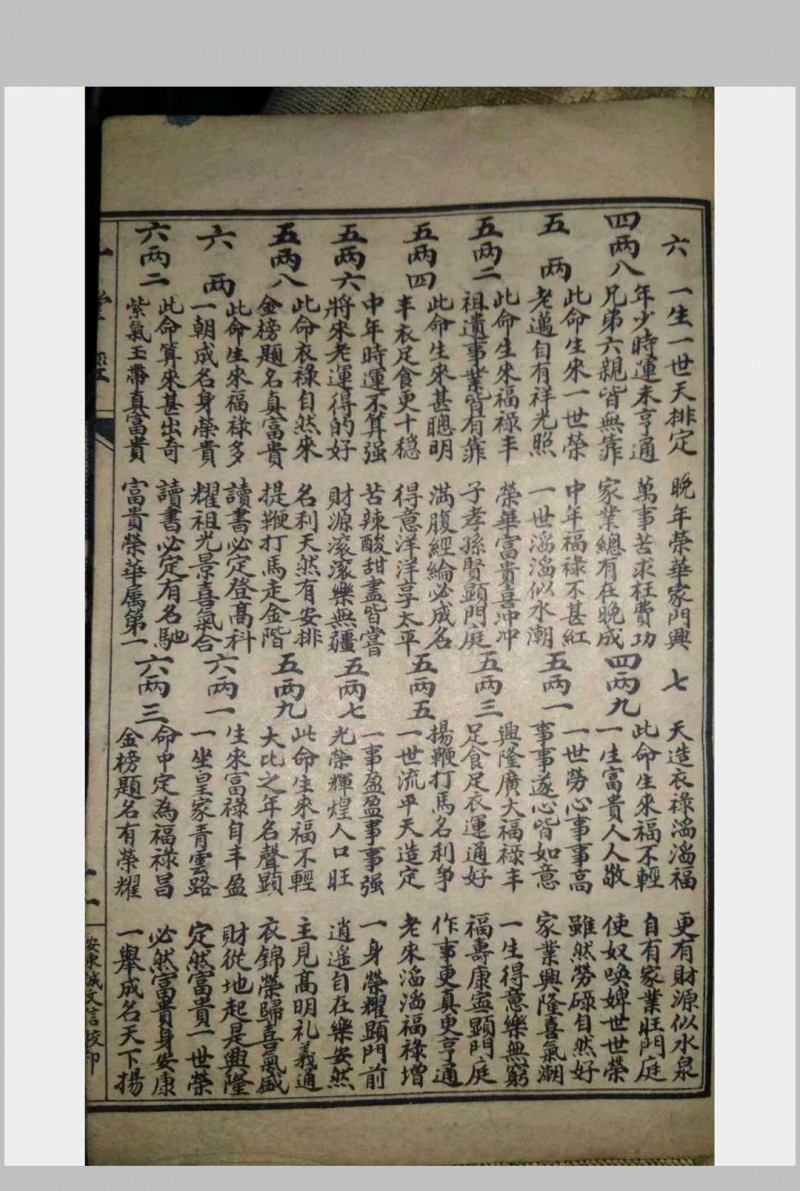 六
一生一世天排定 晚年榮華家門興
四兩八
年少時運未亨通 萬事苦求枉費功
兄弟六親皆無靠 家業總有在晚成
五兩
此命生來一世榮 中年福祿不甚紅
老邁自有祥光照 一世滔滔似水潮
五兩二
此命生來福祿丰 榮華富貴喜冲冲
祖遺事業皆有靠 子孝孫賢顯門庭
五兩四
此命生來甚聰明 滿腹經綸必成名
丰衣足食更十穩 得意洋洋享太平
五兩六
中年時運不算强 苦辣酸甜盡皆嘗
將來老運得的好 財源滾滾樂無疆
五兩八
此命衣祿自然來 名利天然有安排
金榜題名真富貴 提鞭打馬走金階
六兩
此命生來福祿多 讀書必定登髙科
一朝成名身榮貴 耀祖光景喜氣合
六兩二
此命算來甚出奇 讀書必定有名馳
紫氣玉帶真富貴 富貴榮華属第一
七
天造衣祿滔滔福 更有財源似水泉
四兩九
此命生來福不輕 自有家業旺門庭
一生富貴人人敬 使奴喚婢世世榮
五兩一
一世勞心事事高 雖然勞碌自然好
事事遂心皆如意 家業興隆喜氣潮
五兩三
興隆廣大福祿丰 一生得意樂無窮
足食足衣運通好 福壽康寧顯門庭
五兩五
揚鞭打馬名利爭 作事更真更亨通
一世流平天造定 老來滔滔福祿增
五兩七
一事盈盈事事强 一身榮耀顯門前
光榮輝煌人口旺 逍遥自在樂安然
五兩九
此命生來福不輕 主見髙明礼義通
大比之年名聲顯 衣錦榮歸喜氣盛
六兩一
生來富祿自丰盈 財從地起是興隆
一坐皇家青雲路 定然富貴一世榮
六兩三
命中定為福祿昌 必然富貴身安康
金榜題名有榮耀 一舉成名天下揚
安東誠文信校印